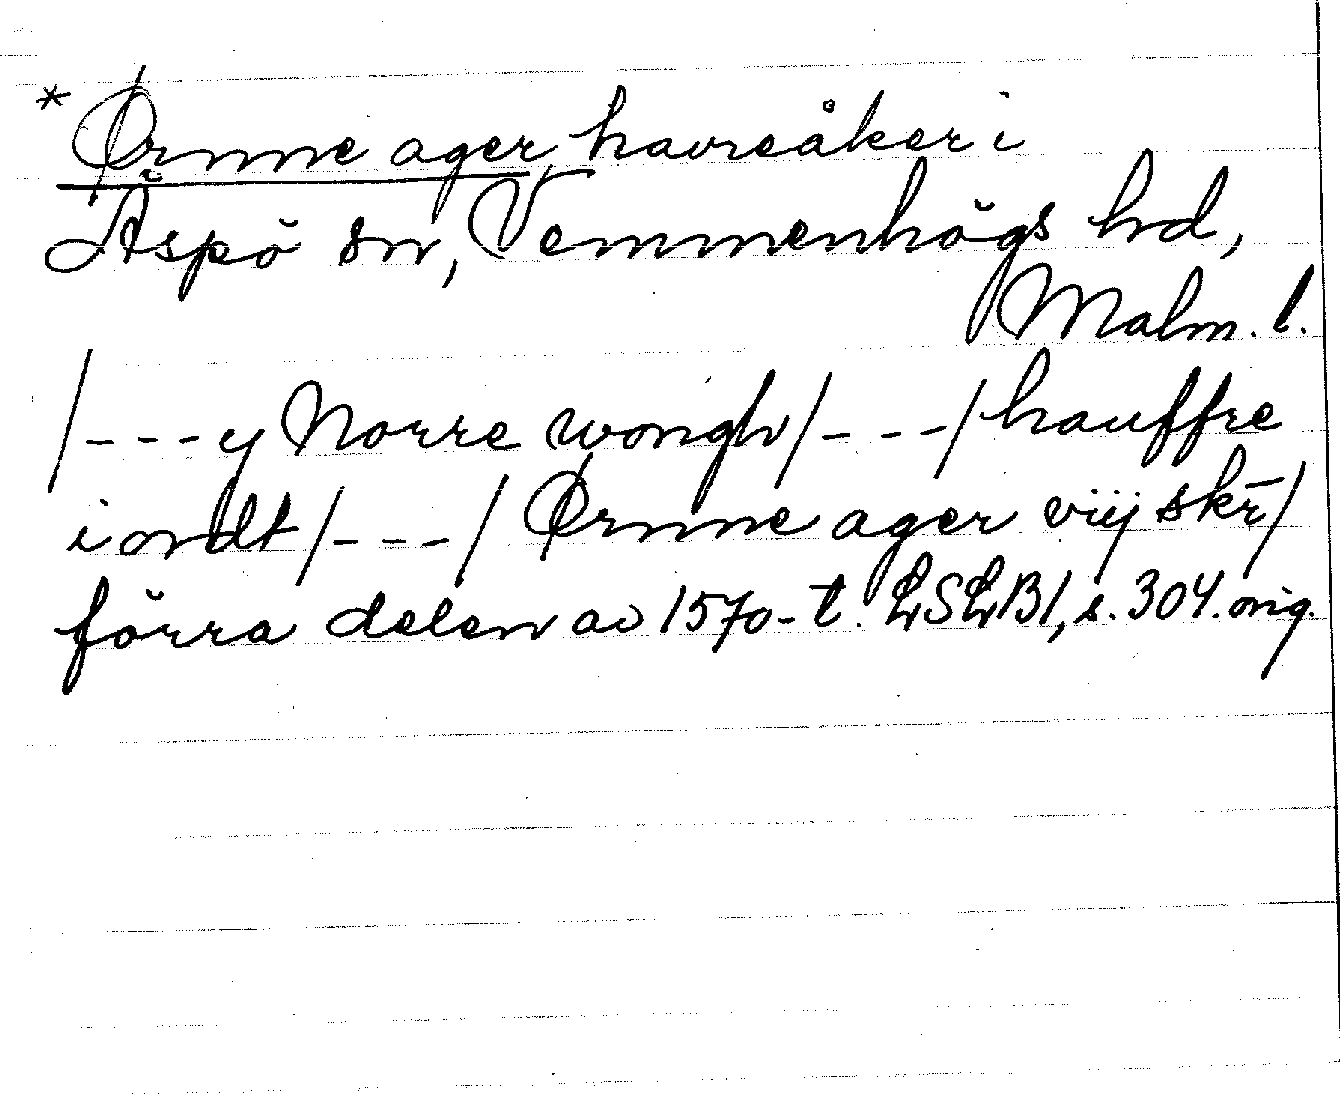 * Ørnne ager, havreåker i
Äspö sn, Vemmenhögs hd,
Malm. l.
/---y Norre wongh/---/hauffre
iordt/---/Ørnne ager viij skr̄/
förra delen av 1570-t. LSLB1, s. 304. orig.